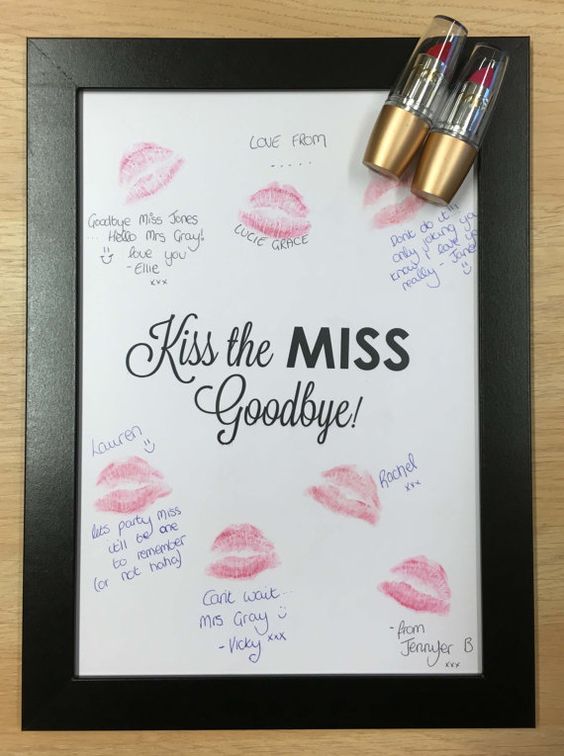 LOVE FROM
.....
LUCIE GRACE
Goodbye Miss Jones
... Hello Mrs Gray!
love you
- Ellie
xxx
Dont do it!!!
only joking you
know I love you
really - Jane
Kiss the MISS
Goodbye!
Lauren
lets party miss
it'll be one
to remember
(or not haha)
Rachel
xxx
Can't wait...
Mrs Gray
- Vicky xxx
- from
Jennyer B
xxx